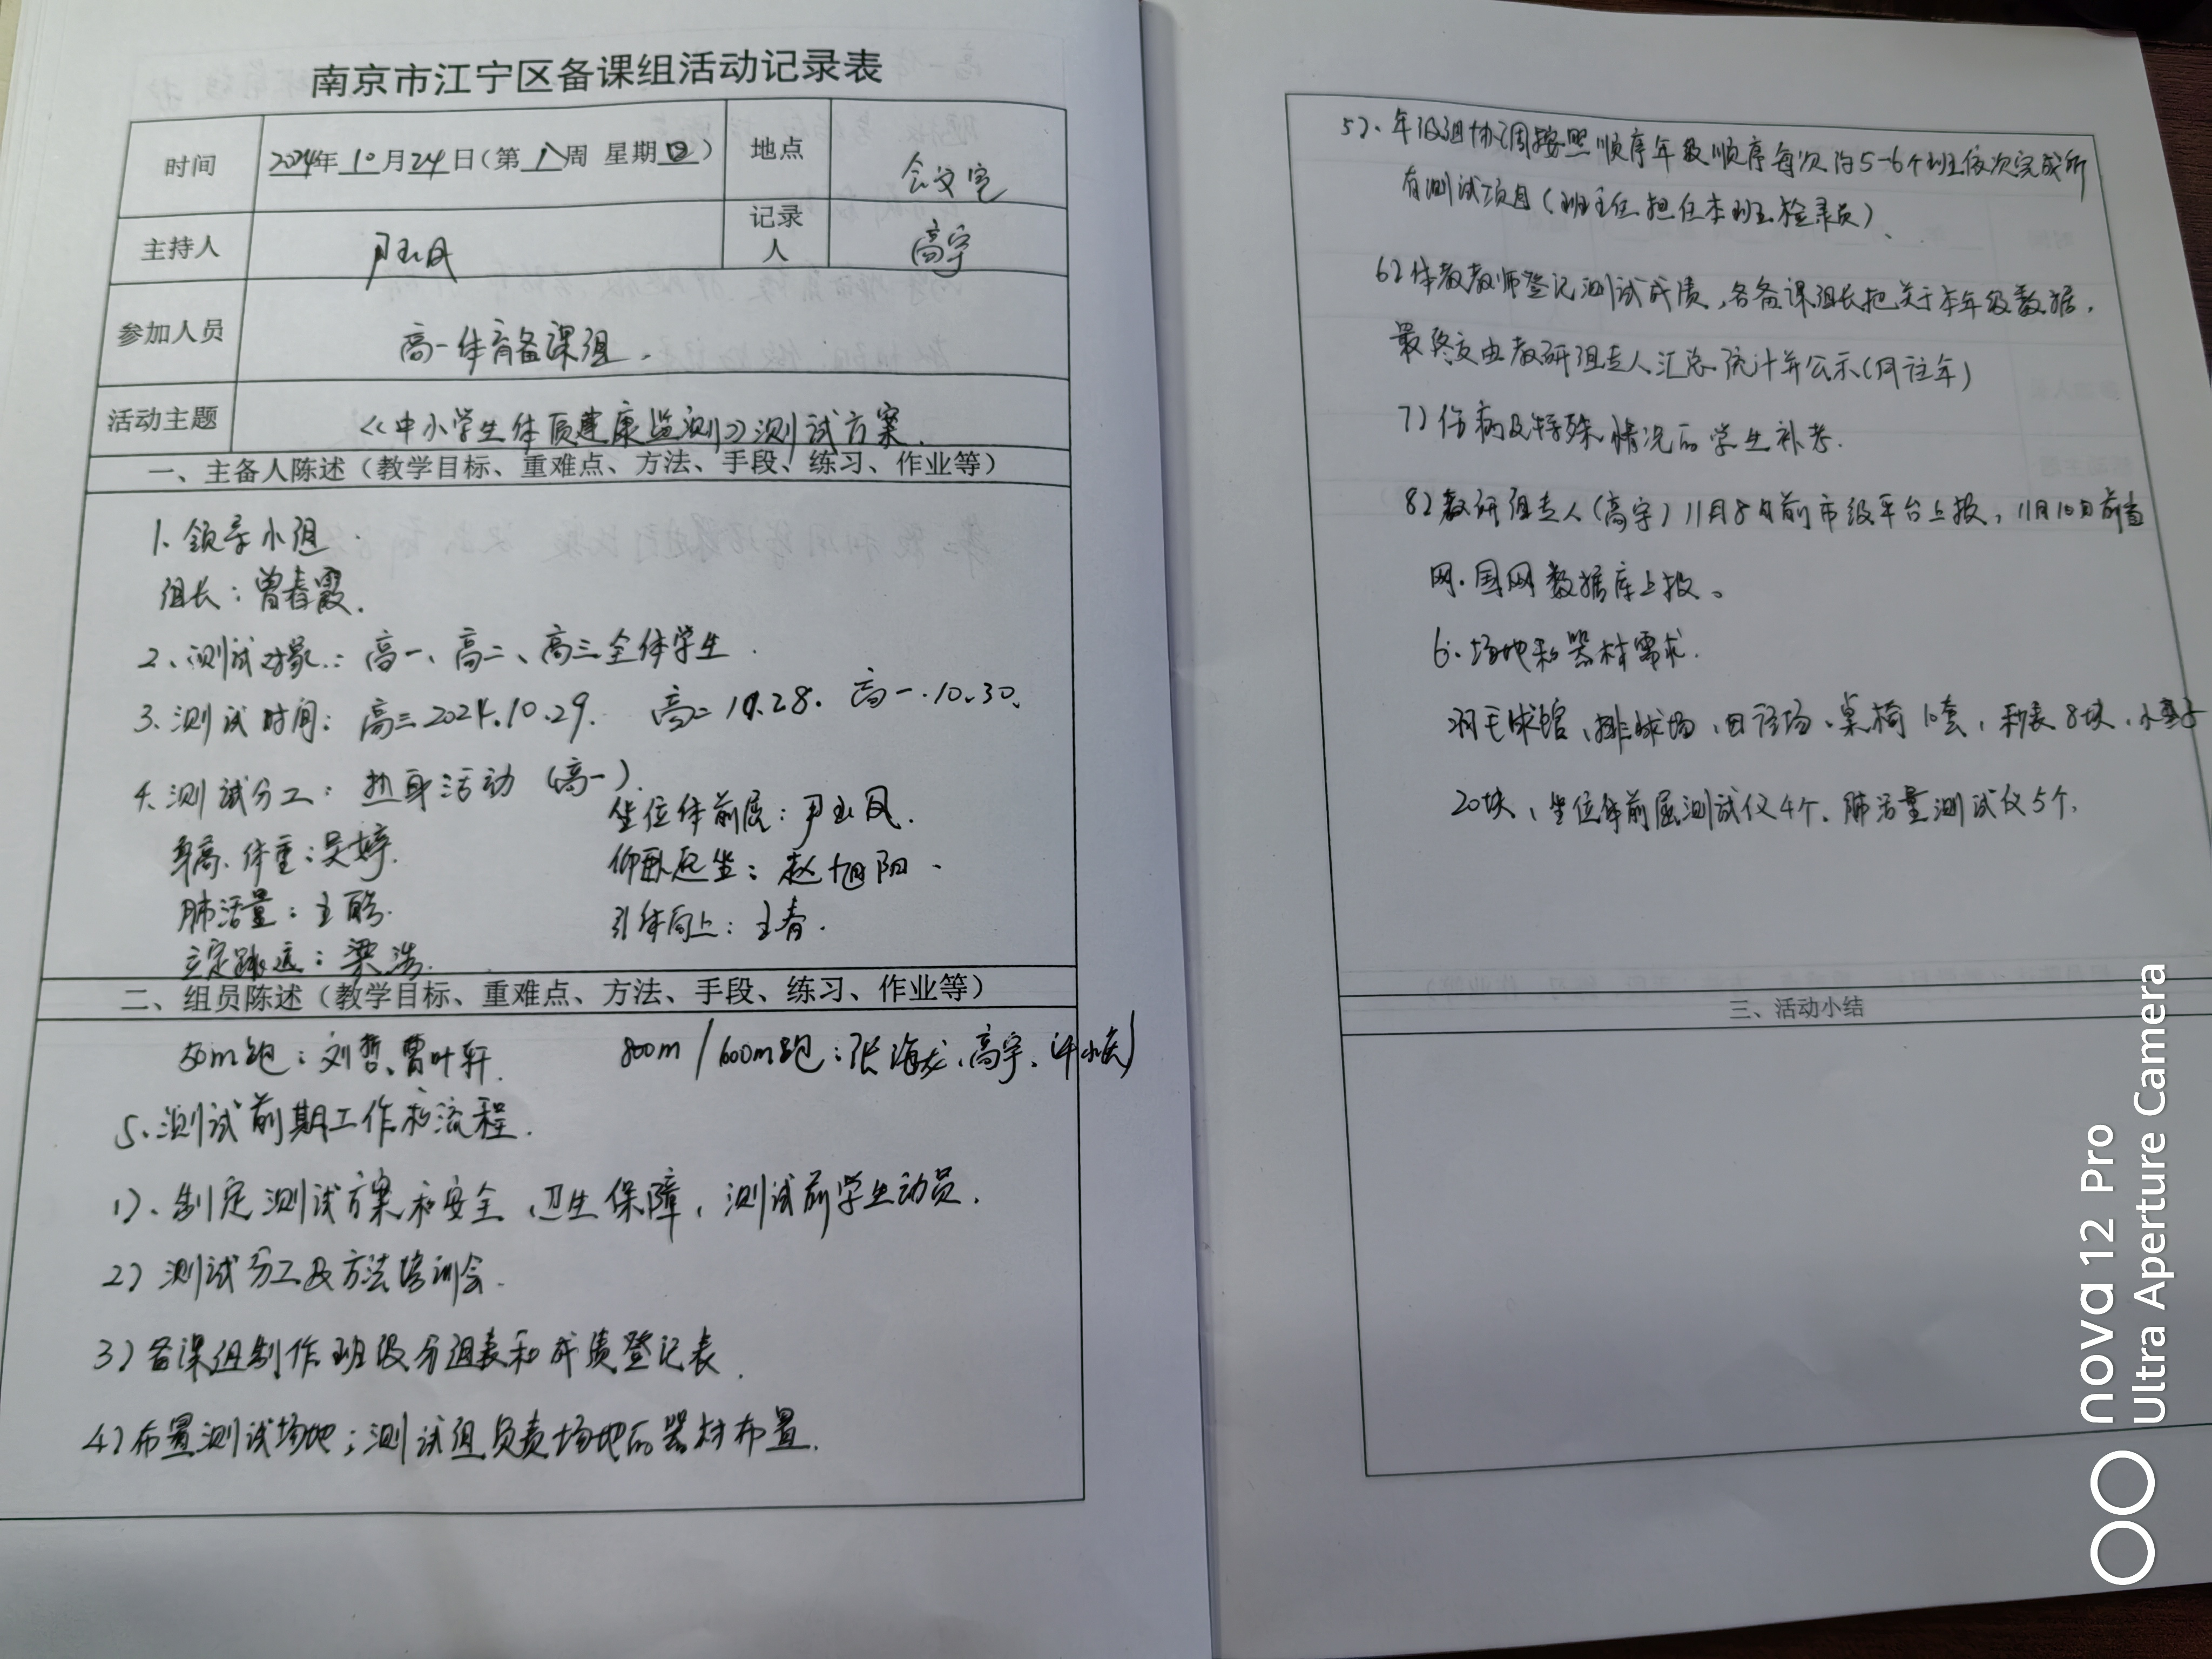 南京市江宁区备课组活动记录表
时间 2024年10月24日(第八周 星期四) 地点 会议室
主持人 尹玉凤 记录人 高宇
参加人员 高一体育备课组.
活动主题 《中小学生体质建康监测》测试方案.
一、主备人陈述(教学目标、重难点、方法、手段、练习、作业等)
1. 领导小组.
组长:曾春霞.
2、测试对象:高一、高二、高三全体学生.
3、测试时间:高三2024.10.29. 高二10.28. 高一.10.30.
4、测试分工:热身活动(高一).
坐位体前屈:尹玉凤.
身高、体重:吴婷.
仰卧起坐:赵旭阳.
肺活量:王
引体向上:王春.
立定跳远:梁浩.
二、组员陈述(教学目标、重难点、方法、手段、练习、作业等)
50m跑:刘哲、曹叶轩. 800m/1000m跑:张海龙、高宇、
5、测试前期工作和流程.
1)、制定测试方案和安全、卫生保障,测试前学生动员.
2)测试分工及方法培训会.
3)备课组制作班级分组表和成绩登记表.
4)布置测试场地;测试组负责场地的器材布置.
5)、年级组协调按照顺序年级顺序每次约5-6个班依次完成所
有测试项目(班主任担任本班检录员)、
6)体教教师登记测试成绩,各备课组长把关于本年级数据,
最终交由教研组专人汇总统计并公示(同往年)
7)伤病及特殊情况的学生补考.
8)教研组专人(高宇)11月8日前市级平台上报,11月10日前省
网.国网数据库上报。
6.场地和器材需求.
羽毛球馆、排球场、田径场、桌椅10套,秒表8块、小垫子
20块、坐位体前屈测试仪4个、肺活量测试仪5个.
三、活动小结
nova 12 Pro
Ultra Aperture Camera